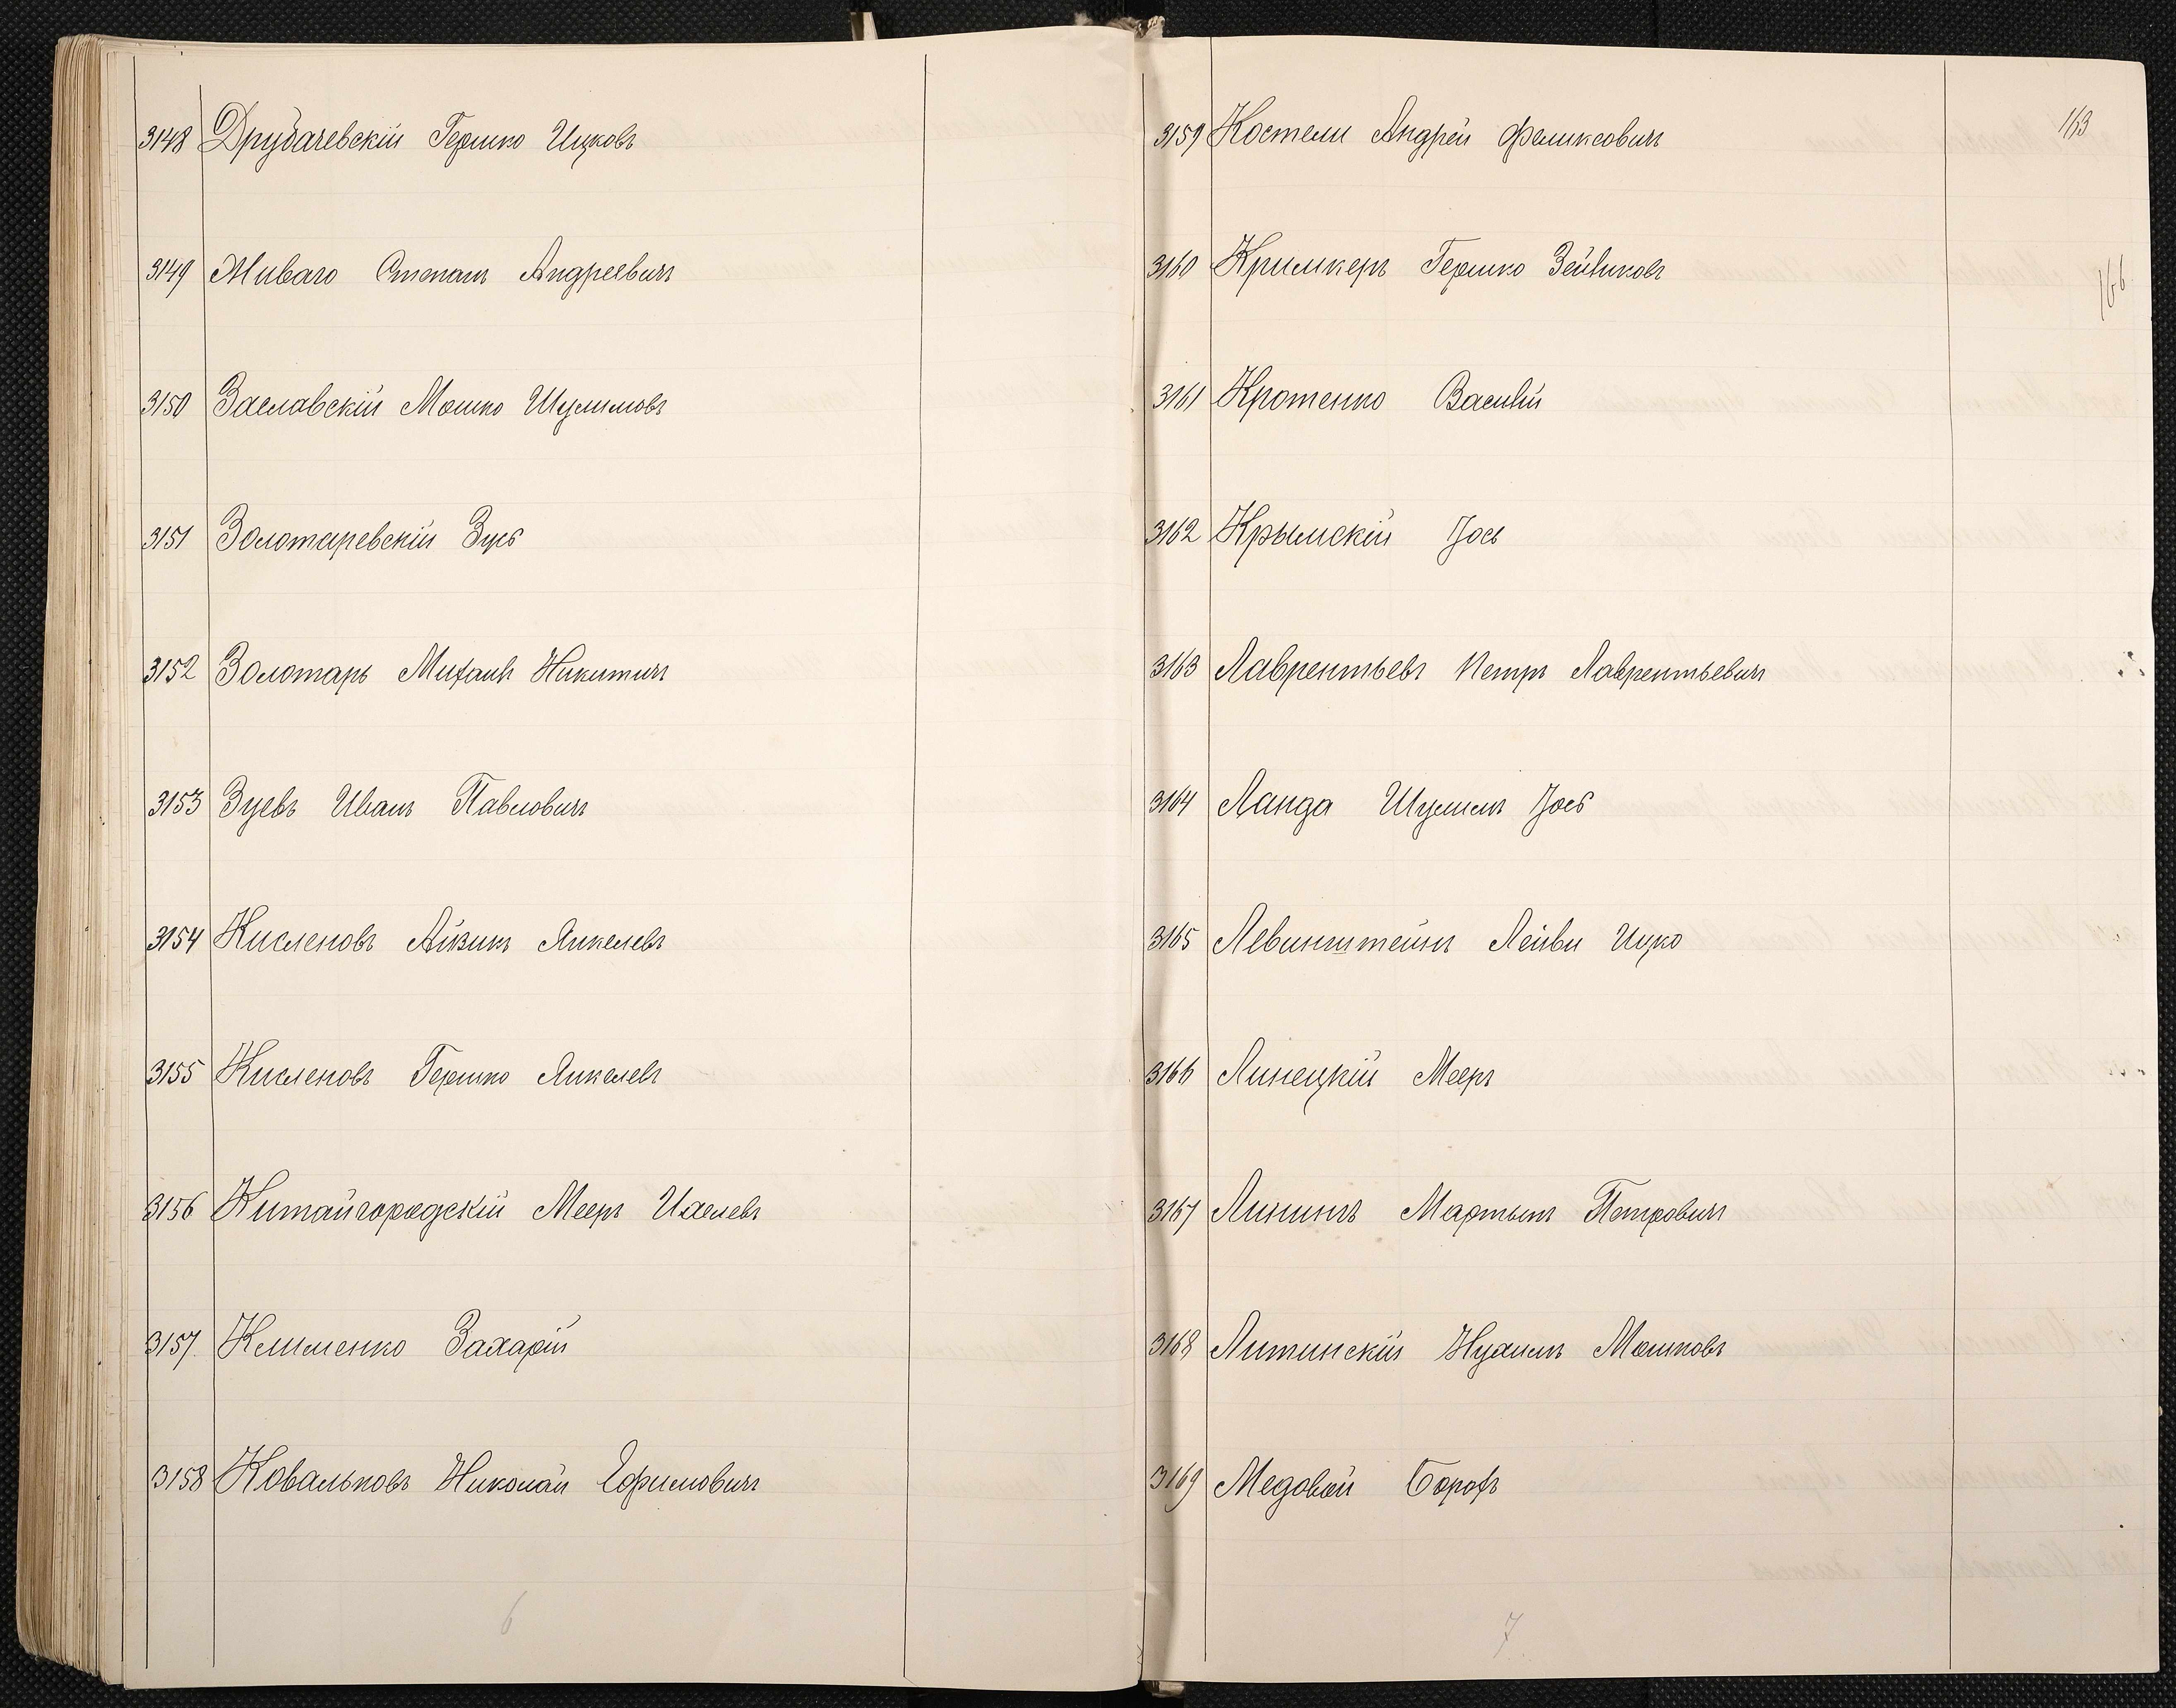 3148 Друбачевскій Гершко Ицковъ
3149 Живаго Степанъ Андреевичъ
3150 Заславскій Мошко Шулимовъ
3151 Золотаревскій Зусь
3152 Золотарь Михаилъ Никитичъ
3153 Зуевъ Иванъ Павловичъ
3154 Кисленовъ Айзикъ Янкелевъ
3155 Кисленовъ Гершко Янкелевъ
3156 Китайгородскій Мееръ Ихелевъ
3157 Клименко Захарій
3158 Ковальковъ Николай Ефимовичъ
6
163
166
3159 Костели Андрей Феликсовичъ
3160 Кримкеръ Гершко Зейликовъ
3161 Кротенко Василій
3162 Крымскій Іось
3163 Лаврентьевъ Петръ Лаврентьевичъ
3164 Ланда Шулимъ Іось
3165 Левинштейнъ Лейви Ицко
3166 Линецкій Мееръ
3167 Лининъ Мартынъ Петровичъ
3168 Литинскій Нухимъ Мошковъ
3169 Медовой Борохъ
7